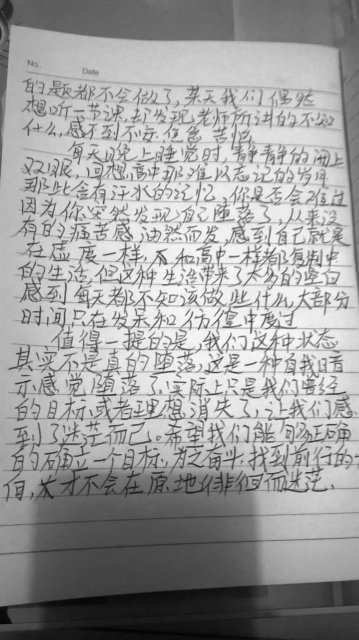 No.
Date
的题都不会做了,某天我们偶然
想听一节课,却发现老师所讲的不知
什么,感不到不安 焦急 苦恼
每天晚上睡觉时,静静的闭上
双眼,回想高中那难以忘记的岁月
那些含有汗水的记忆,你是否会难过
因为你突然发现自己堕落了,从来没
有的痛苦感油然而发,感到自己就是
在虚度一样,和高中一样都复制中
的生活,但这种生活带来了太多的空白
感到每天都不知该做些什么,大部分
时间只在发呆和彷徨中度过
值得一提的是,我们这种状态
其实不是真的堕落,这是一种自我暗
示感觉堕落了,实际上只是我们曾经
的目标或者理想消失了,让我们感
到了迷茫而已。希望我们能够正确
的确立一个目标,为之奋斗,找到前行的方
向,才不会在原地徘徊而迷茫.